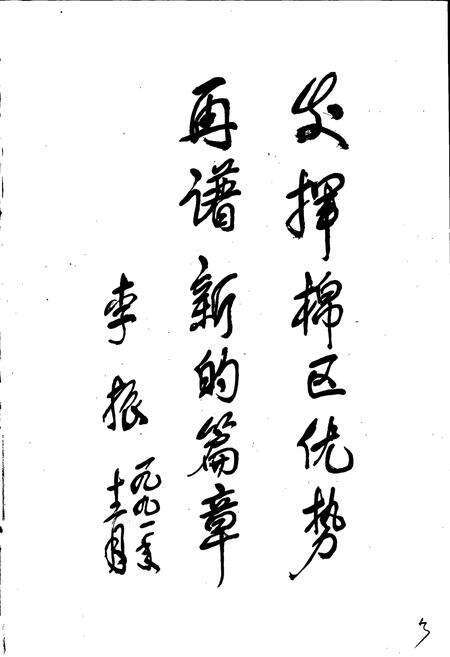 发挥棉区优势
再谱新的篇章
李振
一九九一年
十二月
3